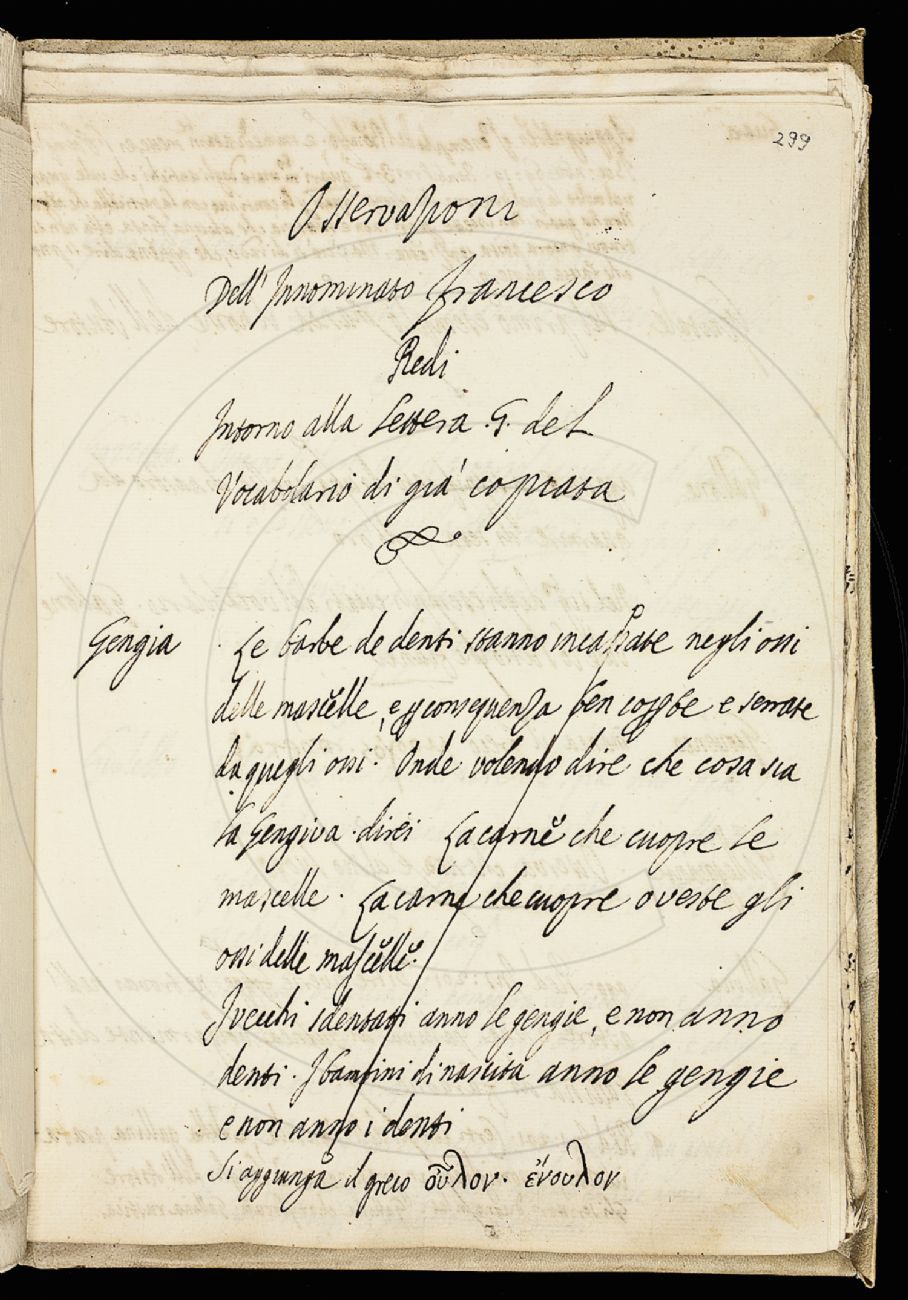 299
Osservazioni
Dell' Innominato Francesco
Redi
Intorno alla Lettera .G. del
Vocabolario di già copiata
Gengia . Le barbe de denti stanno incassate negli ossi
delle mascelle, e p consequenza ben coppte e serrate
da quegli ossi. Onde volendo dire che cosa sia
la Gengiva . direi La carne che cuopre le
mascelle . La carne che cuopre o veste gli
ossi delle mascelle.
I vecchi sdentati anno le gengie, e non anno
denti . I bambini di nascita anno le gengie
e non anno i denti
Si aggiunga il greco οὖλον . ἔνουλον